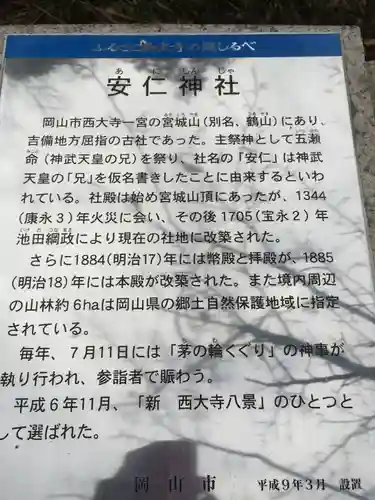 ふるさと西大寺の道しるべ
あ に じん じゃ
安仁神社
岡山市西大寺一宮の宮城山(別名、鶴山)にあり、
吉備地方屈指の古社であった。主祭神として五瀬
命(神武天皇の兄)を祭り、社名の「安仁」は神武
天皇の「兄」を仮名書きしたことに由来するといわ
れている。社殿は始め宮城山頂にあったが、1344
(康永3)年火災に会い、その後1705(宝永2)年
池田綱政により現在の社地に改築された。
さらに1884(明治17)年には幣殿と拝殿が、1885
(明治18)年には本殿が改築された。また境内周辺
の山林約6haは岡山県の郷土自然保護地域に指定
されている。
毎年、7月11日には「茅の輪くぐり」の神事が
執り行われ、参詣者で賑わう。
平成6年11月、「新 西大寺八景」のひとつと
して選ばれた。
岡山市 平成9年3月 設置